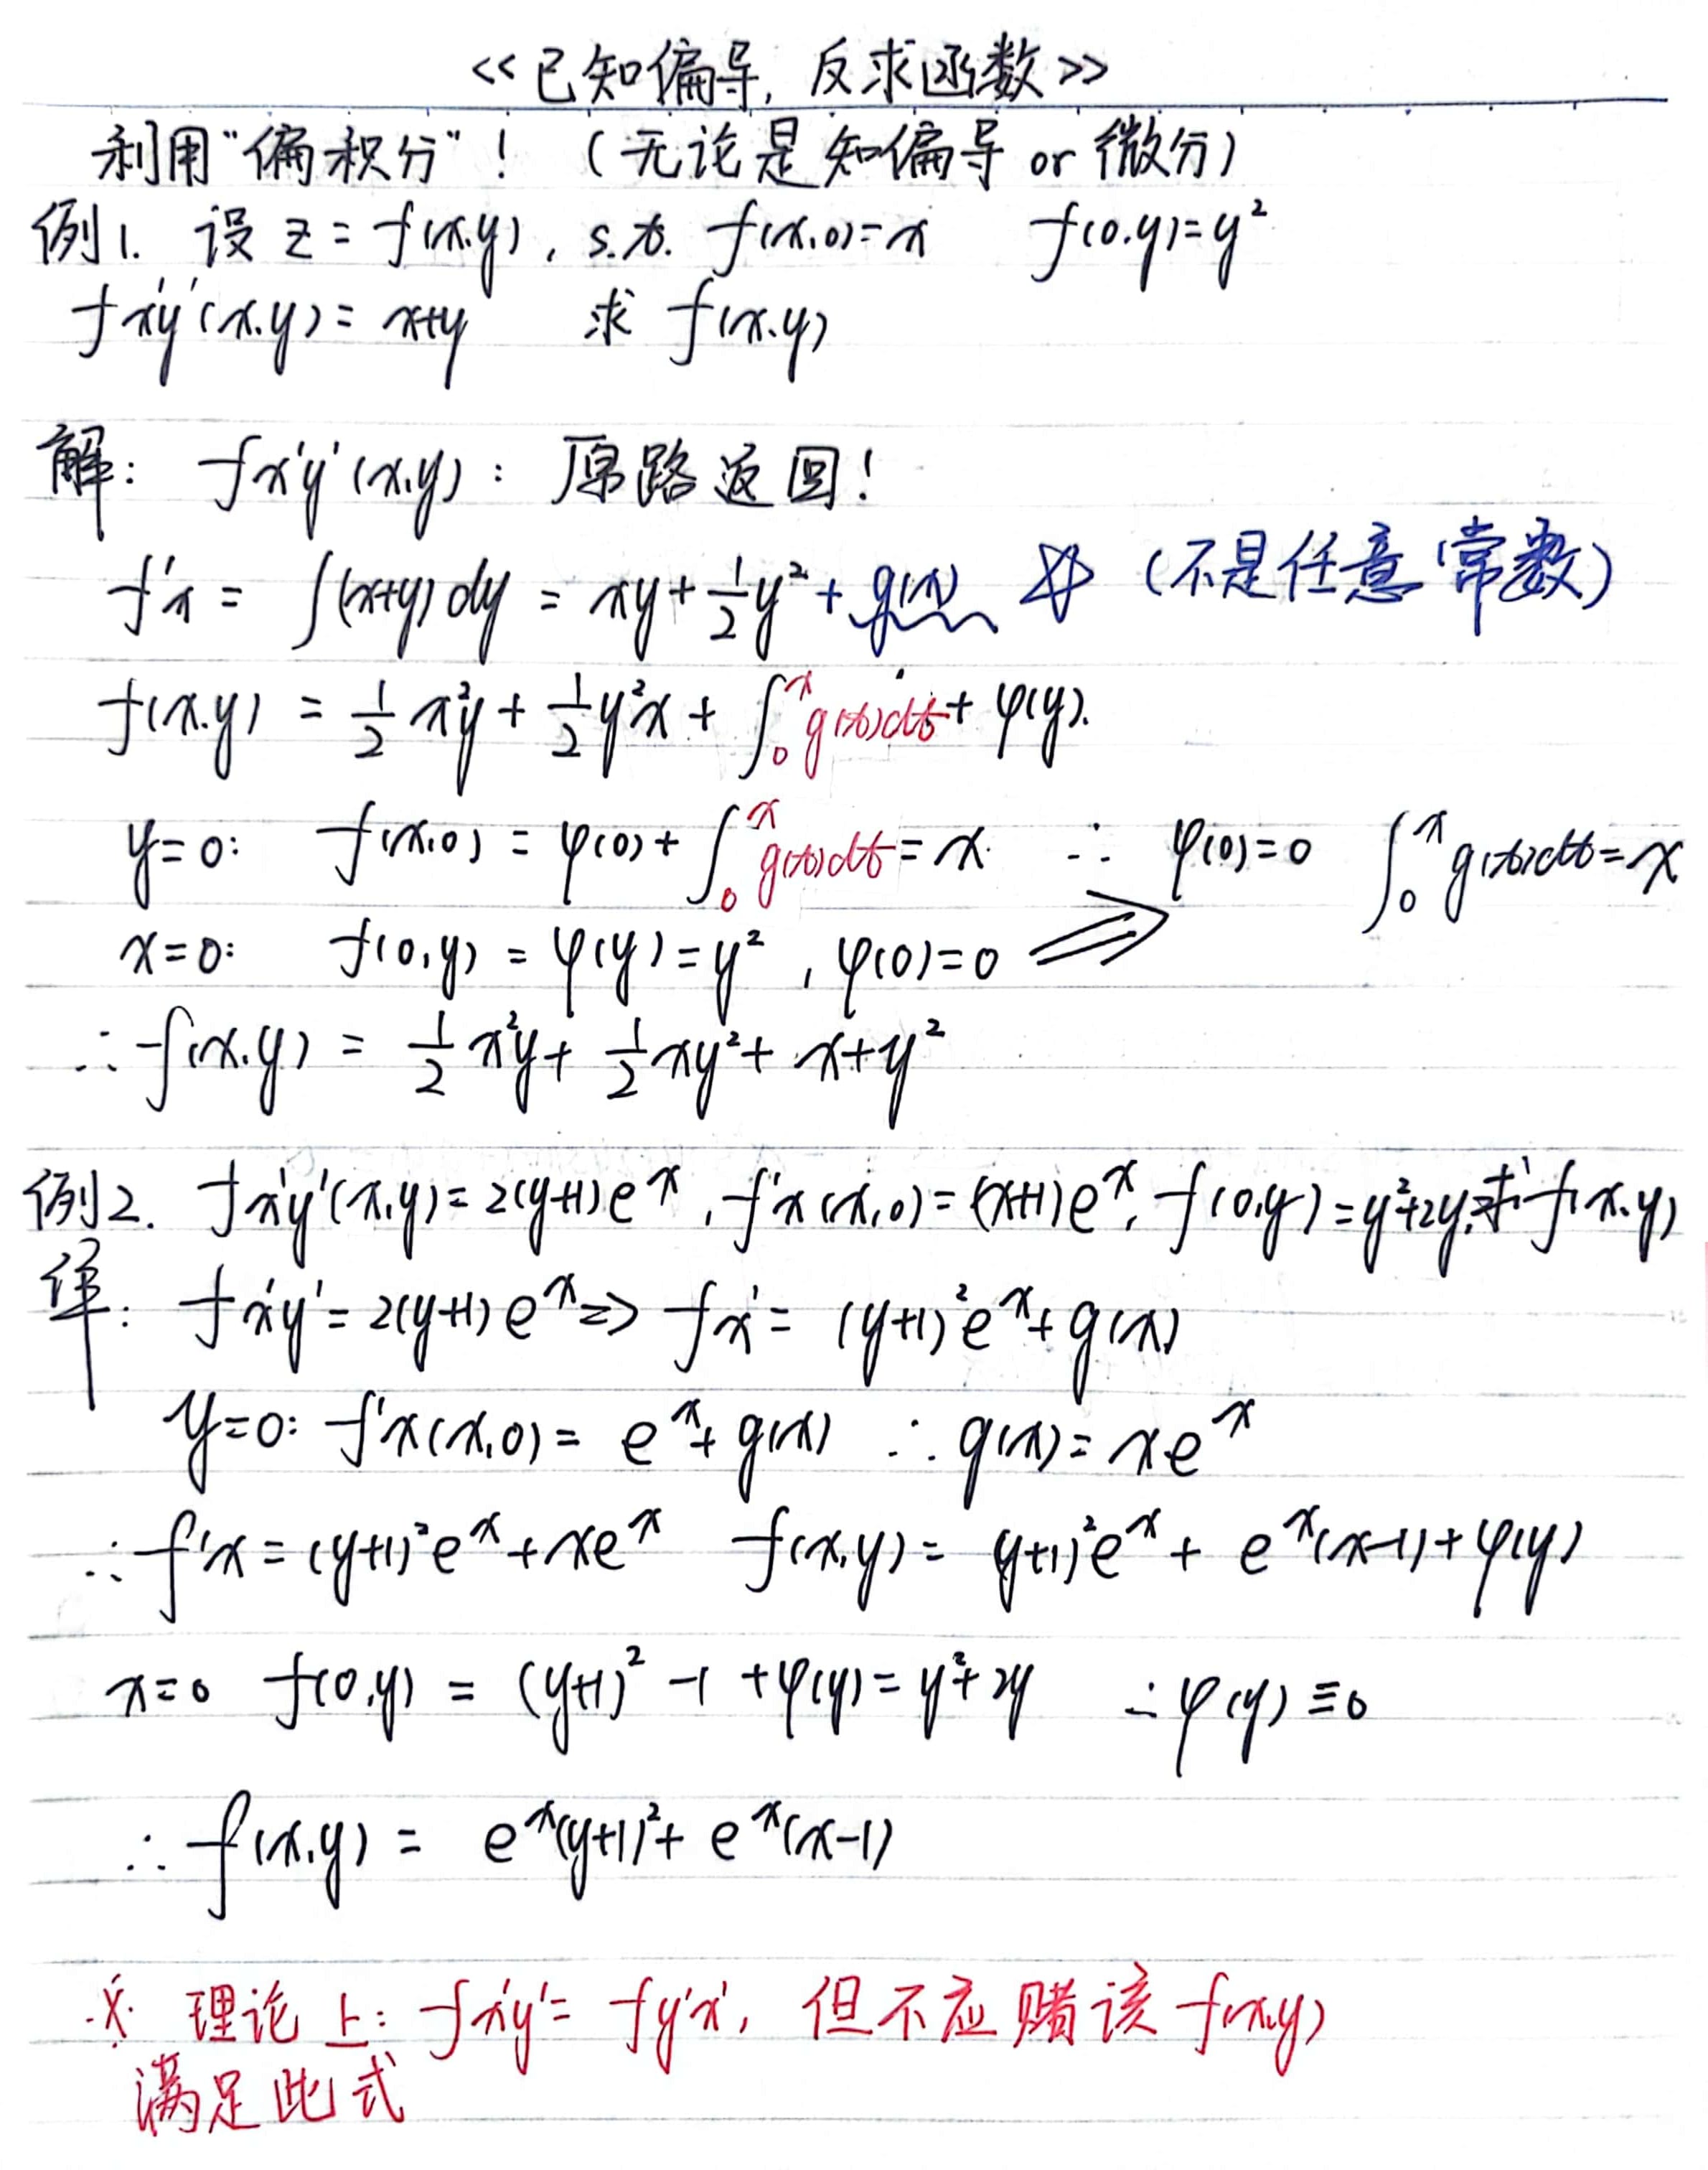 <<已知偏导, 反求函数>>
利用"偏积分"! (无论是知偏导 or 微分)
例1. 设 z = f(x.y), s.t. f(x,0)=x f(0.y)=y²
fx'y'(x.y)= x+y 求 f(x.y)
解: fx'y'(x,y): 原路返回!
f'x = ∫(x+y)dy = xy+½y²+g(x) ☆ (不是任意常数)
f(x.y) = ½x²y+½y²x+∫₀ˣg(t)dt+φ(y).
y=0: f(x,0) = φ(0)+∫₀ˣg(t)dt=x. ∴ φ(0)=0 ∫₀ˣg(t)dt=x
x=0: f(0,y) = φ(y)=y², φ(0)=0 ⟹
∴ f(x.y) = ½x²y+½xy²+x+y²
例2. fx'y'(x,y)=2(y+1)eˣ, f'x(x,0)=(x+1)eˣ, f(0,y)=y²+2y,求f(x.y)
解: fx'y'=2(y+1)eˣ=> fx'= (y+1)²eˣ+g(x)
y=0: f'x(x,0)= eˣ+g(x) ∴ g(x)=xeˣ
∴ f'x=(y+1)²eˣ+xeˣ f(x,y)= (y+1)²eˣ+ eˣ(x-1)+φ(y)
x=0 f(0,y) = (y+1)² -1 +φ(y)=y²+2y ∴φ(y)≡0
∴ f(x.y) = eˣ(y+1)²+ eˣ(x-1)
※ 理论上: fx'y'= fy'x', 但不应赌该 f(x,y)
满足此式